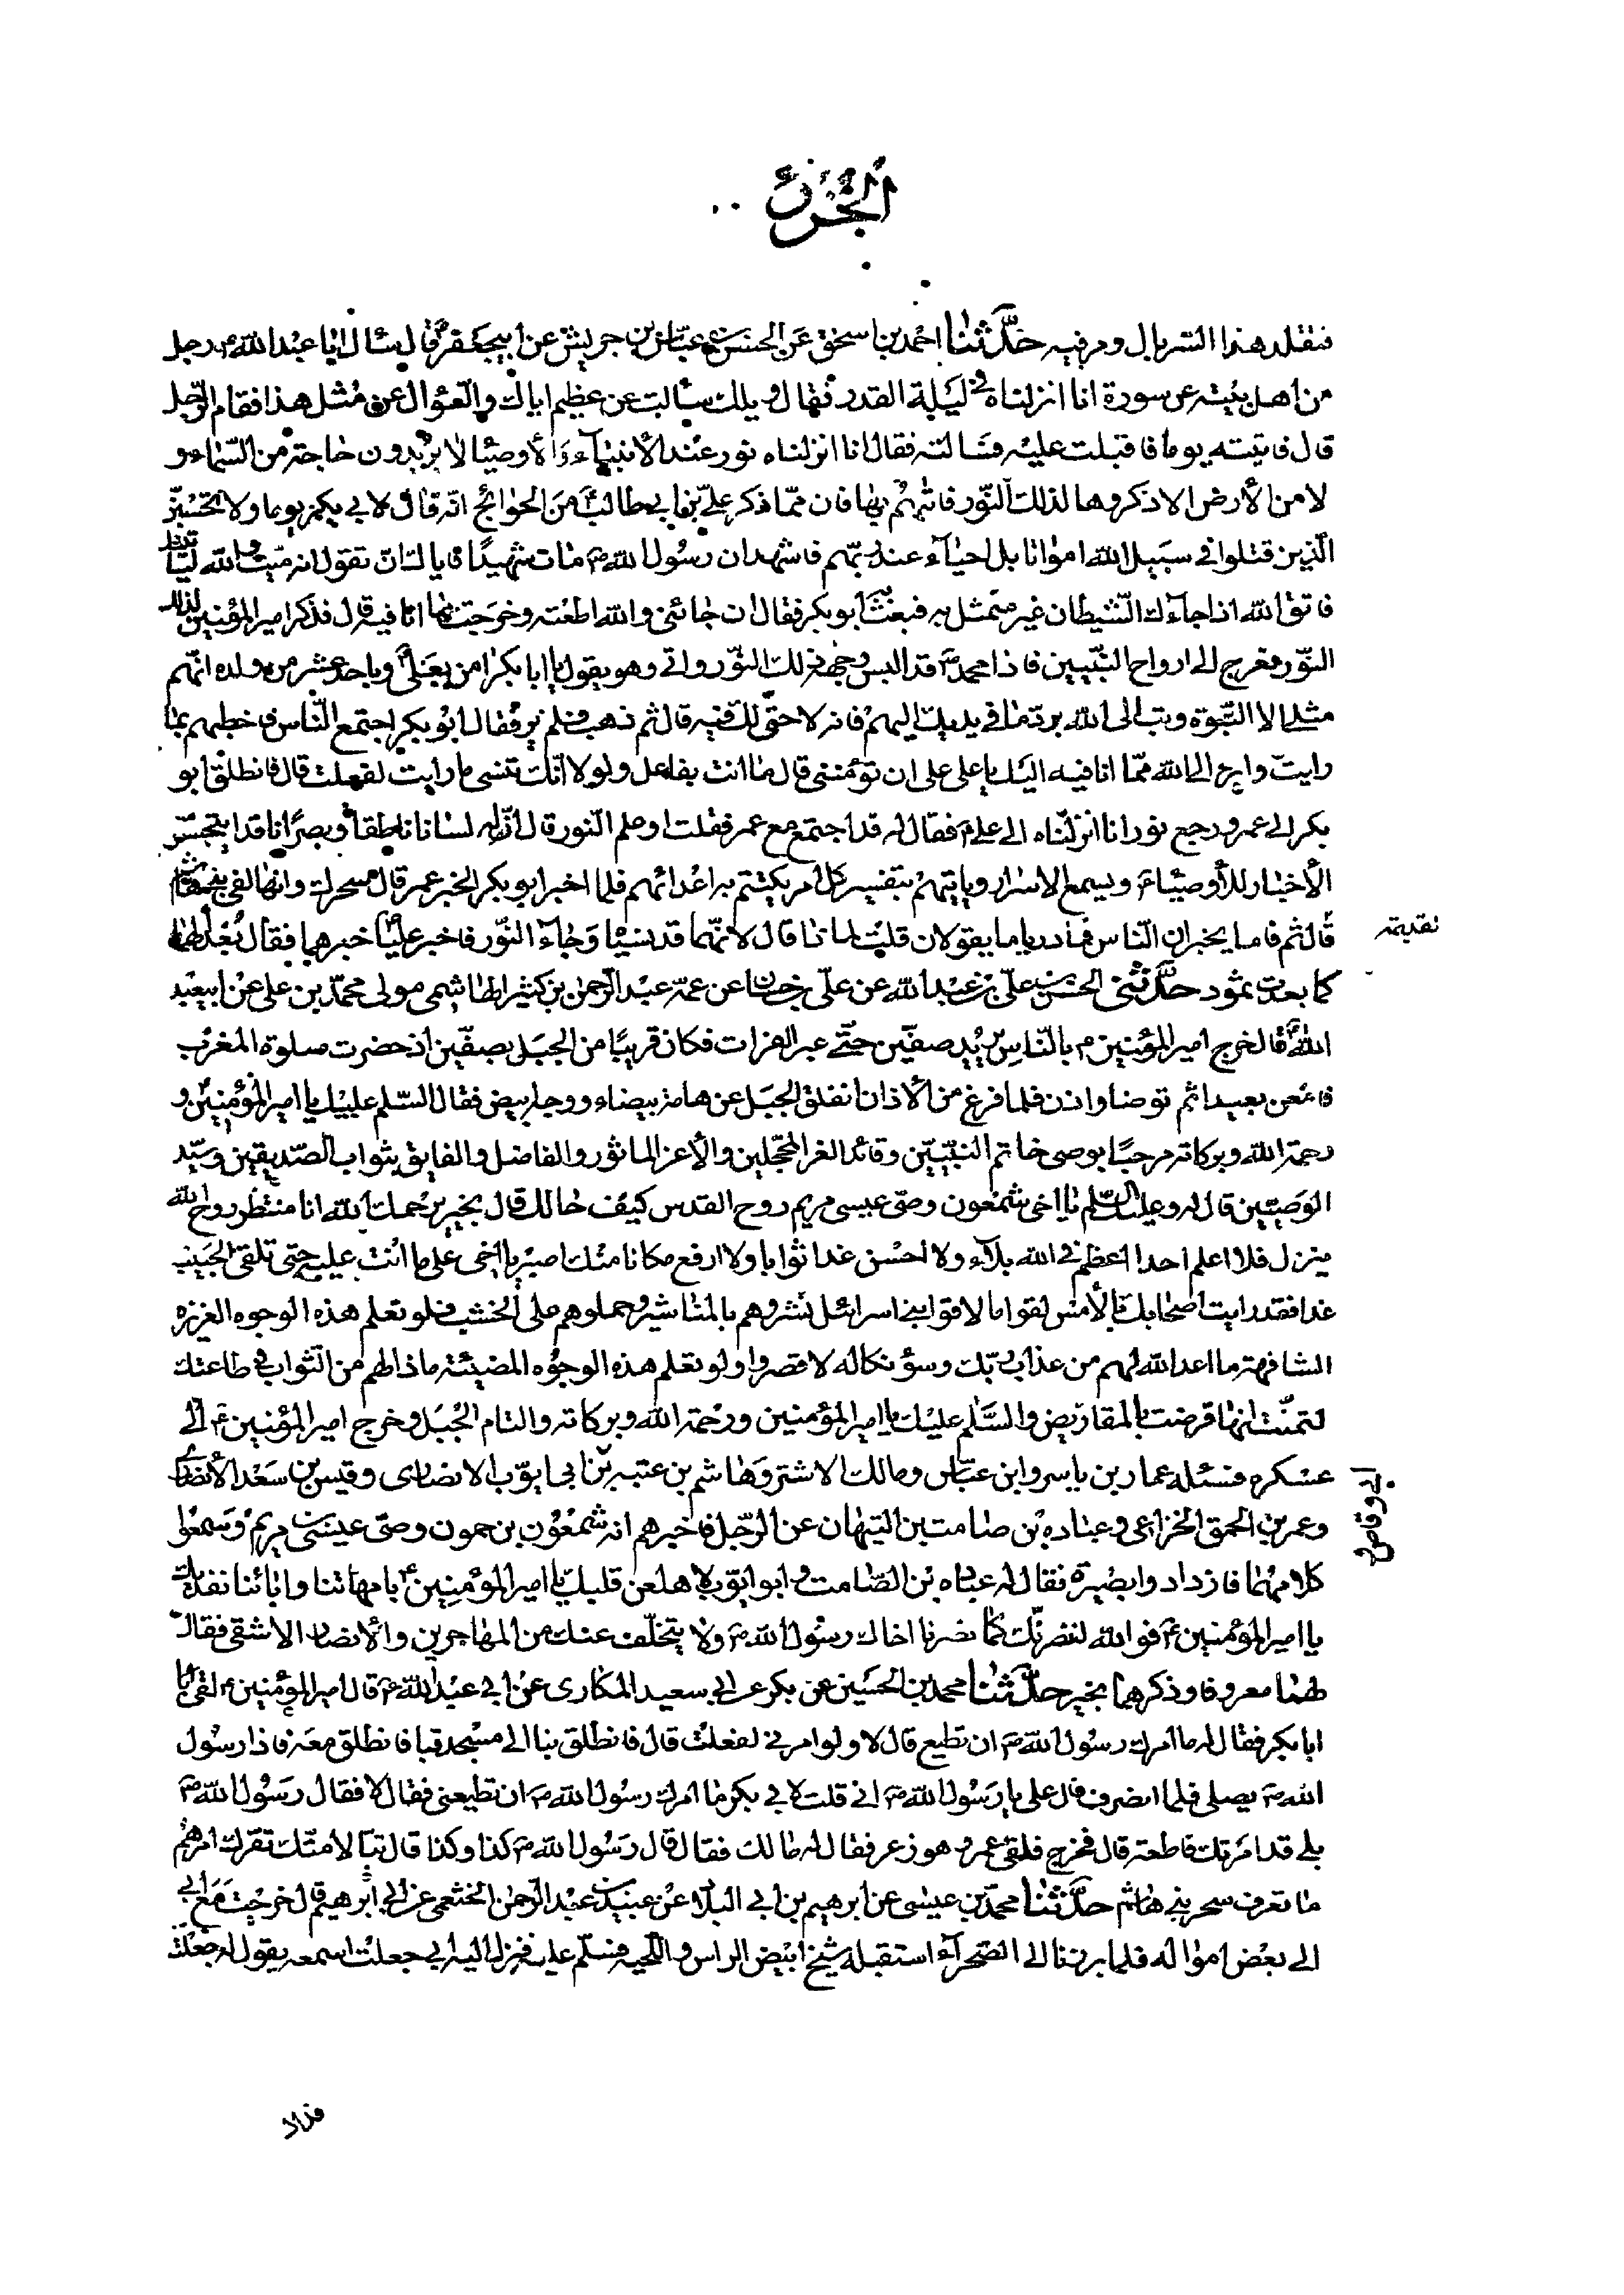 الجزء
فتقلد هذا السربال ومر فيه حدّثنا احمد بن اسحق عن الحسن بن عباس بن جريش عن ابيجعفر ؑ قال سال ابا عبد الله ؑ رجل
من اهل بيته عن سورة انا انزلناه في ليلة القدر فقال ويلك سالت عن عظيم اياك والسؤال عن مثل هذا فقام الرّجل
قال فاتيته يوما فاقبلت عليه فسالته فقال انا انزلناه نور عند الأنبياء والأوصيا لا يريدون حاجة من السّماء و
لا من الأرض الا ذكروها لذلك النّور فاتيهم بها فان ممّا ذكر علىّ بن ابي طالب ؑ من الحوائج انّه قال لابي بكر يوما ولا تحسبنّ
الّذين قتلوا في سبيل الله امواتا بل احياء عند ربّهم فاشهد ان رسول الله ص مات شهيدًا فاياك ان تقول انه ميّت والله لياتينك
فاتق الله اذا جاءك الشّيطان غير متمثل به فبعث به ابو بكر فقال ان جائنى والله اطعته وخرجت مما انا فيه قال فذكر امير المؤمنين لذلك
النّور فعرج الى ارواح النّبيين فاذا محمد ص قد البس وجهه ذلك النّور واتى وهو يقول يا ابا بكر امن بعلى ؑ وباحد عشر من ولده انّهم
مثلى الا النّبوة وتب الى الله بردّ ما في يديك اليهم فانه لا حق لك فيه قال ثم ذهب فلم ير فقال ابو بكر اجتمع النّاس فاخطبهم بما
رايت وابرء الى الله ممّا انا فيه اليك يا على على ان تؤمننى قال ما انت بفاعل ولولا انّك تنسى ما رايت لفعلت قال فانطلق ابو
بكر الى عمر ورجع نور انا انزلناه الى على ؑ فقال له قد اجتمع مع عمر فقلت او علم النّور قال انّ له لسانا ناطقا وبصرًا ناقدا يتجسّس
الأخبار للأوصياء ؑ ويسمع الاسرار وياتيهم بتفسير كل امر يكتتم به اعدائهم فلما اخبر ابو بكر الخبر عمر قال سحرك وانها لفي بنى هاشم
نقديمة
قال ثم قاما يخبران النّاس فما دريا ما يقولان قلت لماذا قال لانّهما قد نسيا وجاء النّور فاخبر عليّا خبرهما فقال بُعدًا لهما
كما بعدت ثمود حدّثنى الحسن بن على بن عبد الله عن علىّ بن حسان عن عمّه عبد الرّحمن بن كثير الهاشمى مولى محمّد بن على عن ابيعبد
الله ؑ قال خرج امير المؤمنين ؑ بالنّاس يريد صفّين حتّى عبر الفرات فكان قريبًا من الجبل بصفّين اذ حضرت صلوة المغرب
فامعن بعيدا ثم توضا واذن فلما فرغ من الأذان انفلق الجبل عن هامة بيضاء ووجه ابيض فقال السّلم عليك يا امير المؤمنين و
رحمة الله وبركاته مرحبًا بوصى خاتم النّبيّين وقائد الغر المحجّلين والأعز الماثور والفاضل والفايق بثواب الصّديقين وسيّد
الوصيّين قال له وعليك السّلم يا اخى شمعون وصىّ عيسى مريم روح القدس كيف حالك قال بخير يرحمك الله انا منتظر روح الله
ينزل فلا اعلم احدا اعظم في الله بلاء ولا احسن غدا ثوابا ولا ارفع مكانا منك اصبر يا اخى على ما انت عليه حتى تلقى الحبيب
غدا فقد رايت اصحابك بالأمس لقوا ما لاقوا بنى اسرائل نشروهم بالمناشير وحملوهم على الخشب فلو تعلم هذه الوجوه العزيزه
الشافهة ما اعد الله لهم من عذاب ربّك وسؤ نكاله لاقصروا ولو تعلم هذه الوجوه المضيئة ماذا لهم من الثواب في طاعتك
لتمنّت انها قرضت بالمقاريض والسّلم عليك يا امير المؤمنين ورحمة الله وبركاته والتام الجبل وخرج امير المؤمنين ؑ الى
عسكره فسئله عمار بن ياسر وابن عبّاس ومالك الاشتر وهاشم بن عتبه بن ابى ايوّب الانصارى وقيس بن سعد الأنصارى
ابى وقاص
وعمر بن الحمق الخزاعى وعباده بن صامت بن التيهان عن الرّجل فاخبرهم انه شمعون بن حمون وصىّ عيسى بن مريم وسمعوا
كلامهما فازدادوا بصيرة فقال له عباده بن الصّامت وابو ايّوب لا هلعن قلبك يا امير المؤمنين ؑ بامهاتنا وابائنا نفديك
يا امير المؤمنين ؑ فوالله لننصرنّك كما نصرنا اخاك رسول الله ص ولا يتخلّف عنك من المهاجرين والأنصار الا شقى فقال
لهما معروفا وذكرهما بخير حدّثنا محمد بن الحسين عن بكر عن ابى سعيد المكارى عن ابي عبد الله ؑ قال امير المؤمنين ؑ لقى ابا
ابا بكر فقال له ما امرك رسول الله ص ان تطيع قال لا ولو امرنى لفعلت قال فانطلق بنا الى مسجد قبا فانطلق معه فاذا رسول
الله ص يصلى فلما انصرف قال على يا رسول الله ص انى قلت لابي بكر ما امرك رسول الله ص ان تطيعنى فقال لا فقال رسول الله ص
بلى قد امرتك فاطعه قال فخرج فلقى عمر وهو ذعر فقال له مالك فقال قال رسول الله ص كذا وكذا قال تبّا لامتك تترك امرهم
ما تعرف سحر بنى هاشم حدّثنا محمّد بن عيسى عن ابرهيم بن ابى البلاد عن عبيد بن عبد الرّحمن الخثعمى عن ابى ابرهيم قال خرجت مع ابى
الى بعض امواله فلما برزنا الى الصّحراء استقبله شيخ ابيض الراس واللّحية فسلّم عليه فنزل اليه ابى جعلت اسمعه يقول له جعلت
فداك